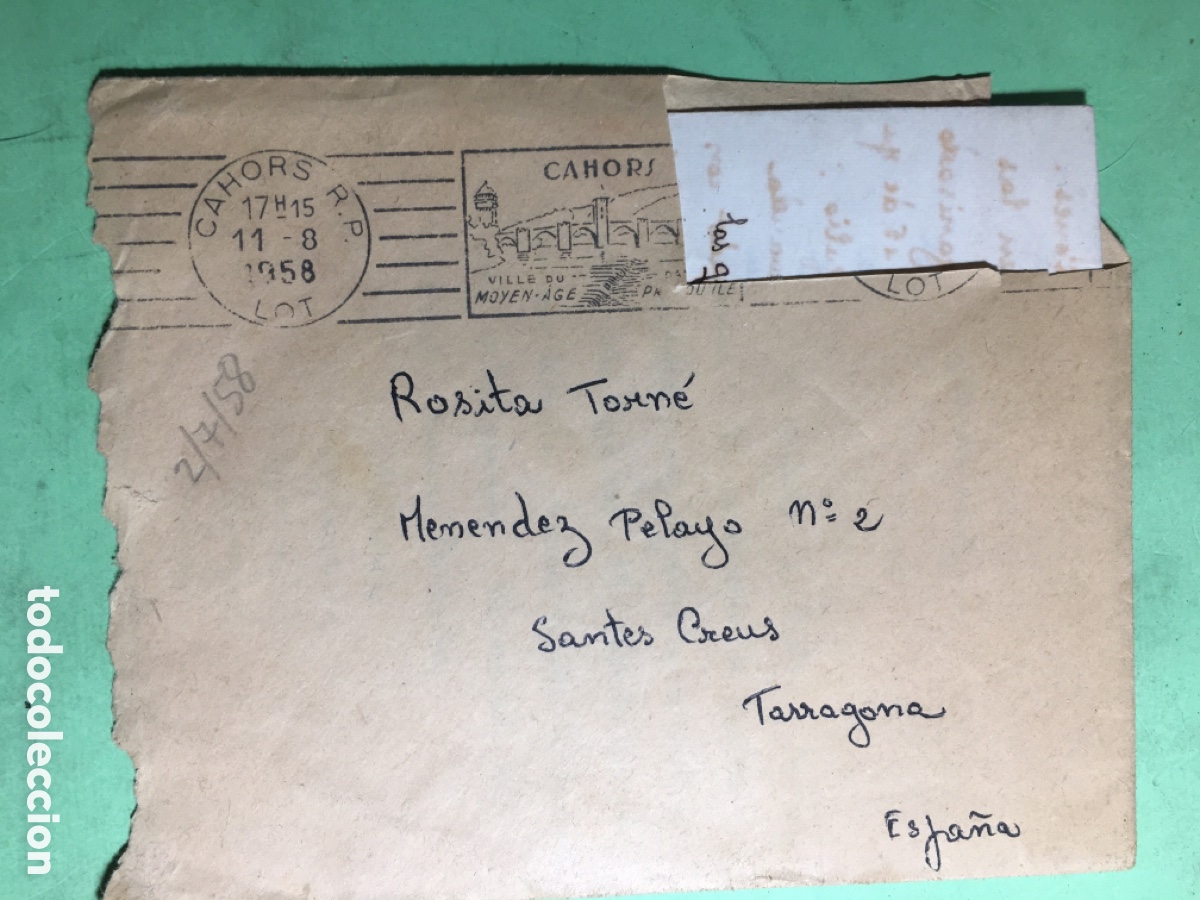 CAHORS R.P.
17H15
11-8
1958
LOT
CAHORS
VILLE DU
MOYEN-AGE
LOT
las
2/7/58
Rosita Torné
Menendez Pelayo Nº 2
Santes Creus
Tarragona
España
todocoleccion